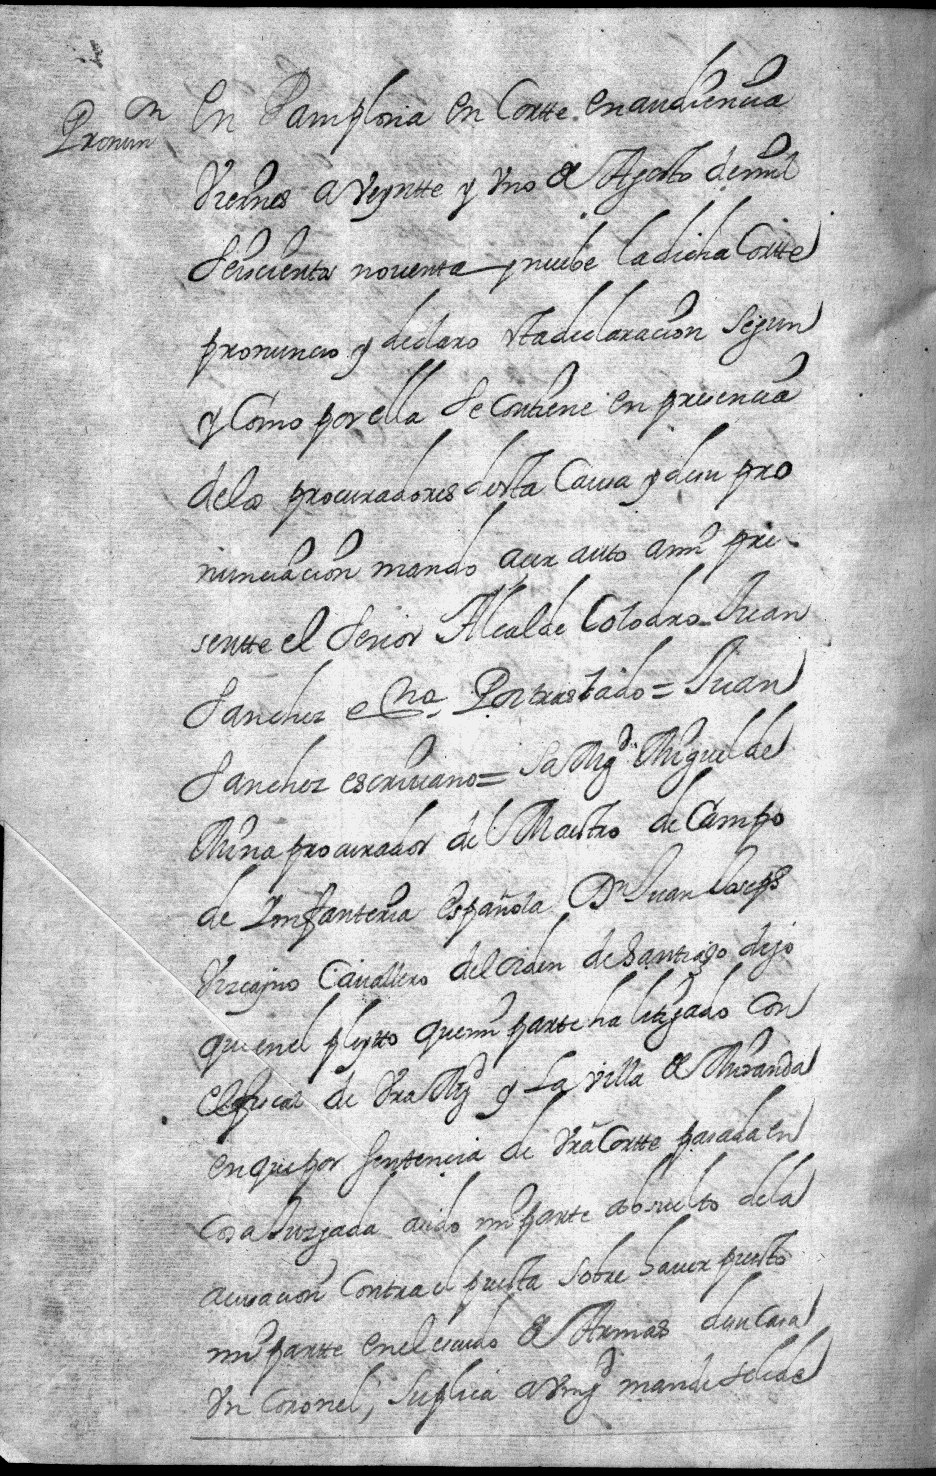 Pronun<sup>on</sup>
En Pamplona en Cortte en audiencia
Viernes a Veyntte y Uno de Agosto de mil
Seiscientos noventa y nuebe la dicha Cortte
pronuncio y declaro esta declaracion segun
y Como por ella se contiene en presencia
de los procuradores desta Causa y de su pro
nunciacion mando acer auto a mi pre
sentte el Señor Alcalde Colodro Juan
Sanchez es<sup>no</sup> Por traslado = Juan
Sanchez escriuano = Sa Mg<sup>d</sup> Miguel de
Mina procurador del Maestro de Campo
de Ynfanteria española Dn Juan Joseph
Vizcayno Cauallero del orden de Santiago dijo
que en el pleytto que mi partte ha litigado con
el fiscal de Vra Mg<sup>d</sup> y La villa de Miranda
en que por sentencia de Vra Cortte pasada en
Cosa Juzgada a sido mi parte absuelto de la
acusacion Contra el puesta sobre hauer puesto
mi partte en el escudo de Armas de su Casa
Un Coronel, Suplica a Vmg<sup>d</sup> mande se le de